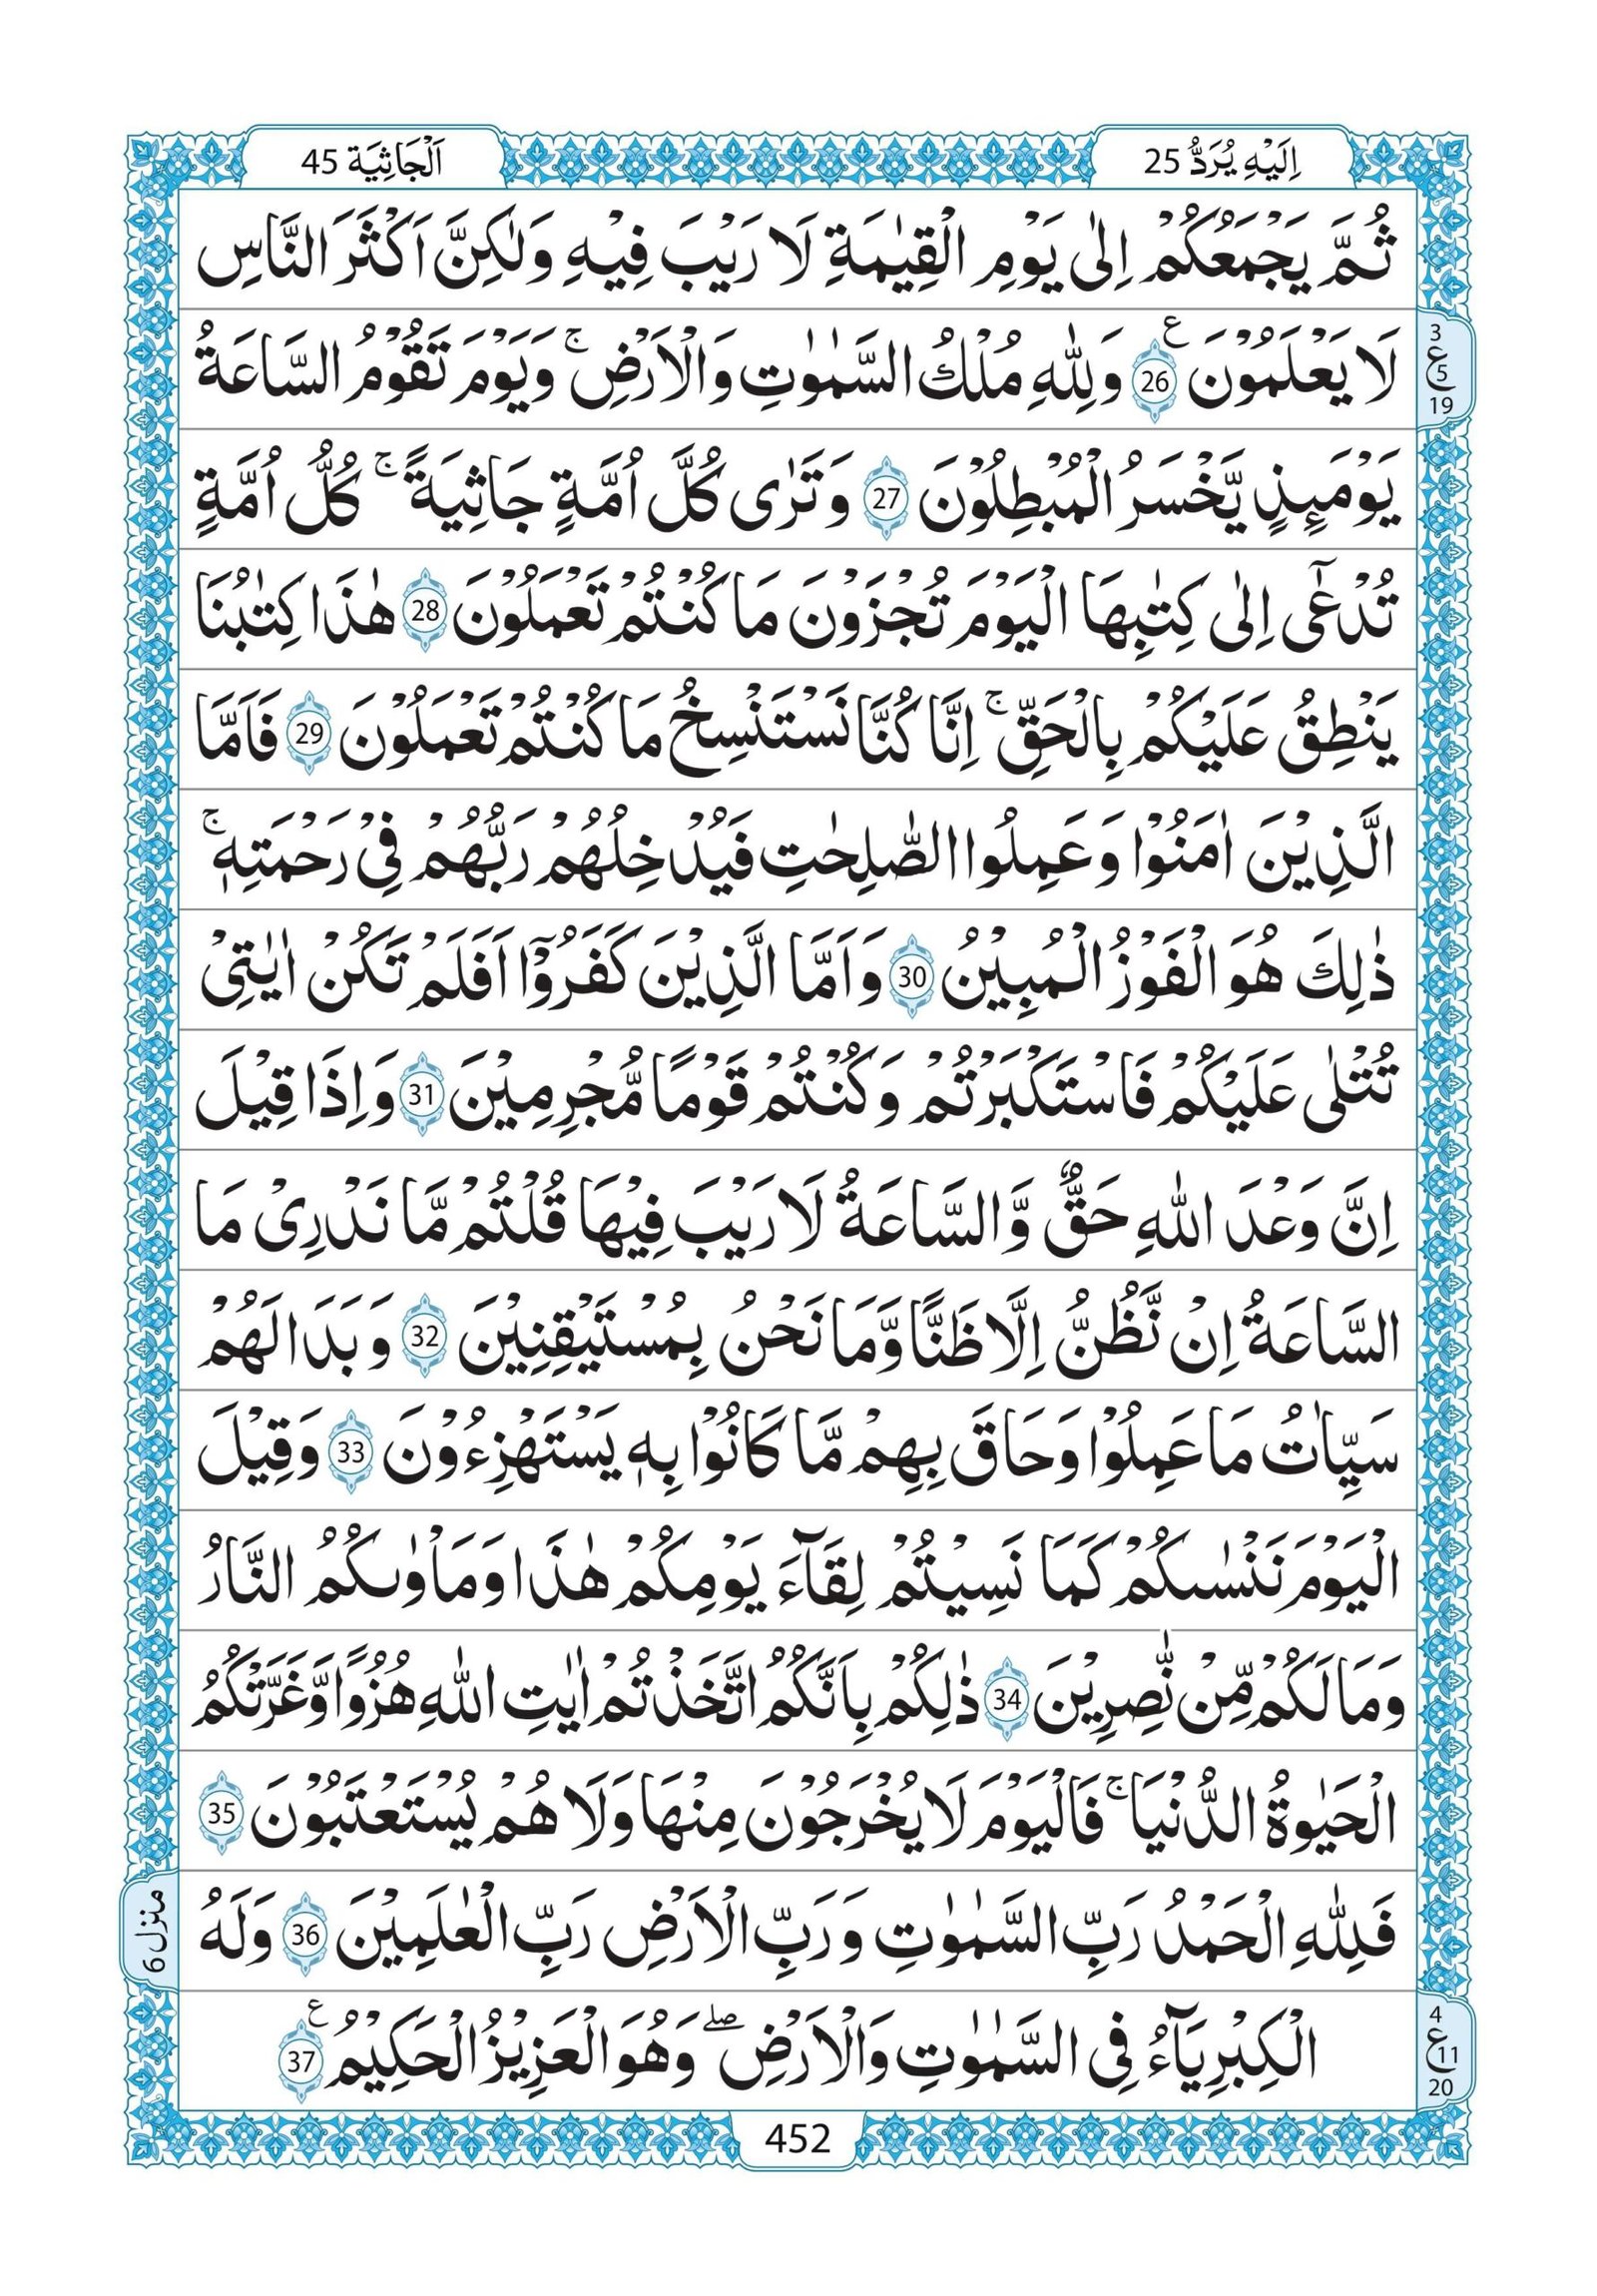 اِلَيْهِ يُرَدُّ 25
اَلْجَاثِيَة 45
ثُمَّ يَجْمَعُكُمْ اِلٰى يَوْمِ الْقِيٰمَةِ لَا رَيْبَ فِيْهِ وَلٰكِنَّ اَكْثَرَ النَّاسِ
لَا يَعْلَمُوْنَ ۧ 26 وَلِلّٰهِ مُلْكُ السَّمٰوٰتِ وَالْاَرْضِ ۚ وَيَوْمَ تَقُوْمُ السَّاعَةُ
3
ع
5
19
يَوْمَىِٕذٍ يَّخْسَرُ الْمُبْطِلُوْنَ 27 وَتَرٰى كُلَّ اُمَّةٍ جَاثِيَةً ۚ كُلُّ اُمَّةٍ
تُدْعٰٓى اِلٰى كِتٰبِهَا اَلْيَوْمَ تُجْزَوْنَ مَا كُنْتُمْ تَعْمَلُوْنَ 28 هٰذَا كِتٰبُنَا
يَنْطِقُ عَلَيْكُمْ بِالْحَقِّ ۚ اِنَّا كُنَّا نَسْتَنْسِخُ مَا كُنْتُمْ تَعْمَلُوْنَ 29 فَاَمَّا
الَّذِيْنَ اٰمَنُوْا وَعَمِلُوا الصّٰلِحٰتِ فَيُدْخِلُهُمْ رَبُّهُمْ فِيْ رَحْمَتِهٖ ۚ
ذٰلِكَ هُوَ الْفَوْزُ الْمُبِيْنُ 30 وَاَمَّا الَّذِيْنَ كَفَرُوْٓا اَفَلَمْ تَكُنْ اٰيٰتِيْ
تُتْلٰى عَلَيْكُمْ فَاسْتَكْبَرْتُمْ وَكُنْتُمْ قَوْمًا مُّجْرِمِيْنَ 31 وَاِذَا قِيْلَ
اِنَّ وَعْدَ اللّٰهِ حَقٌّ وَّالسَّاعَةُ لَا رَيْبَ فِيْهَا قُلْتُمْ مَّا نَدْرِيْ مَا
السَّاعَةُ اِنْ نَّظُنُّ اِلَّا ظَنًّا وَّمَا نَحْنُ بِمُسْتَيْقِنِيْنَ 32 وَبَدَا لَهُمْ
سَيِّاٰتُ مَا عَمِلُوْا وَحَاقَ بِهِمْ مَّا كَانُوْا بِهٖ يَسْتَهْزِءُوْنَ 33 وَقِيْلَ
الْيَوْمَ نَنْسٰىكُمْ كَمَا نَسِيْتُمْ لِقَآءَ يَوْمِكُمْ هٰذَا وَمَاْوٰىكُمُ النَّارُ
وَمَا لَكُمْ مِّنْ نّٰصِرِيْنَ 34 ذٰلِكُمْ بِاَنَّكُمُ اتَّخَذْتُمْ اٰيٰتِ اللّٰهِ هُزُوًا وَّغَرَّتْكُمُ
الْحَيٰوةُ الدُّنْيَا ۚ فَالْيَوْمَ لَا يُخْرَجُوْنَ مِنْهَا وَلَا هُمْ يُسْتَعْتَبُوْنَ 35
فَلِلّٰهِ الْحَمْدُ رَبِّ السَّمٰوٰتِ وَرَبِّ الْاَرْضِ رَبِّ الْعٰلَمِيْنَ 36 وَلَهُ
منزل 6
الْكِبْرِيَآءُ فِى السَّمٰوٰتِ وَالْاَرْضِ ۖ وَهُوَ الْعَزِيْزُ الْحَكِيْمُ ۧ 37
4
ع
11
20
452